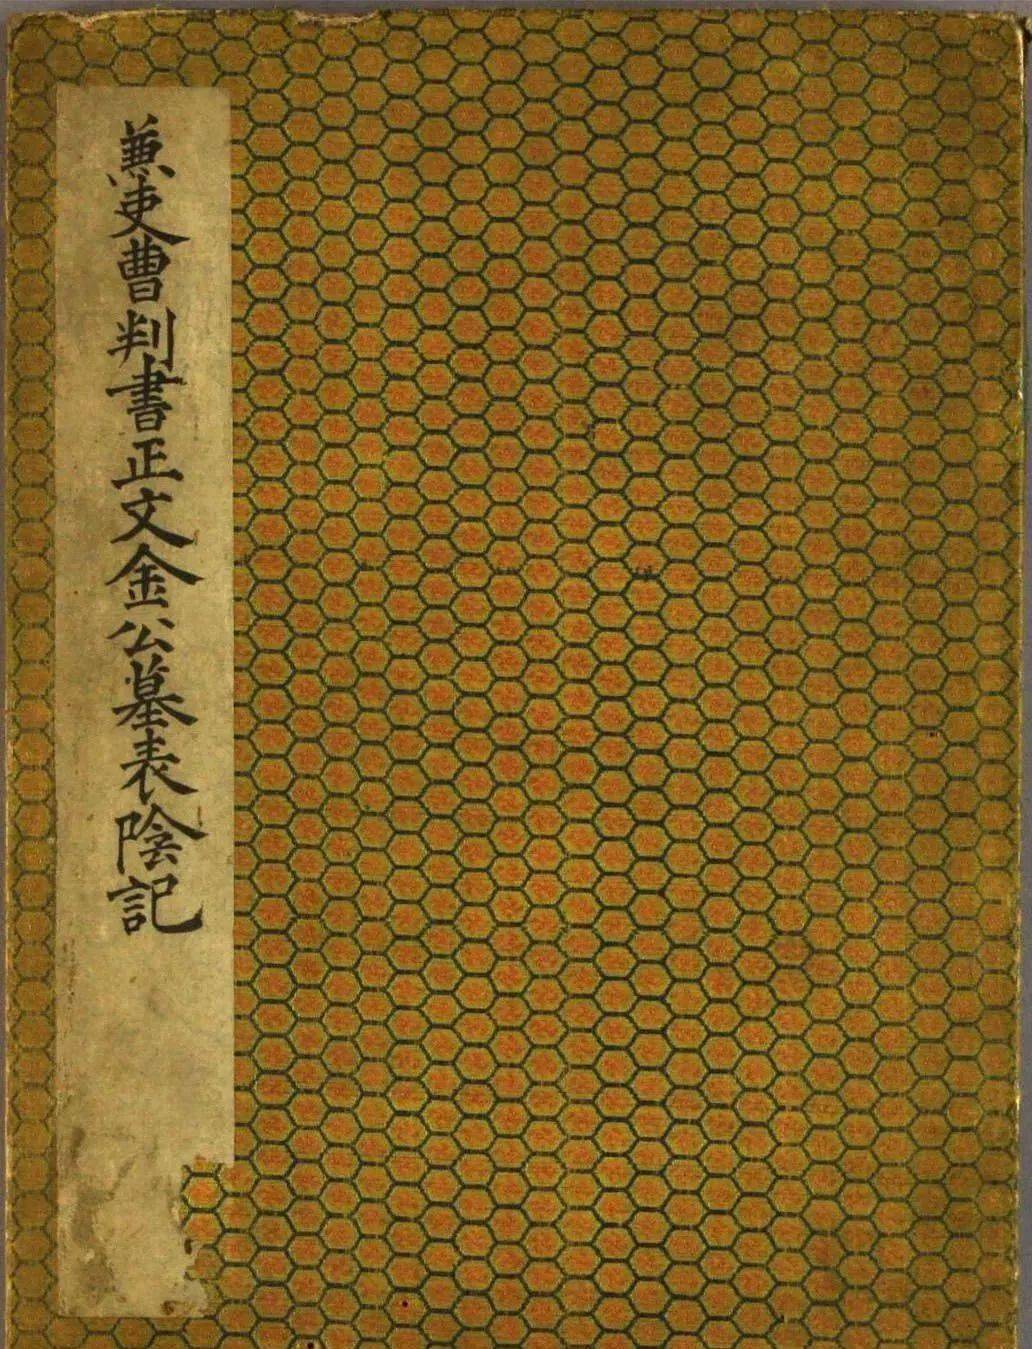 兼吏曹判書正文金公墓表陰記